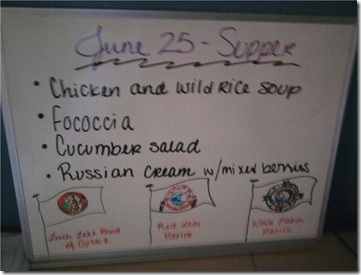 June 25 - Supper
• Chicken and wild rice soup
• Fococcia
• Cucumber salad
• Russian cream w/mixed berries
Leech Lake Band of Ojibwe
Red Lake Nation
White Earth Nation